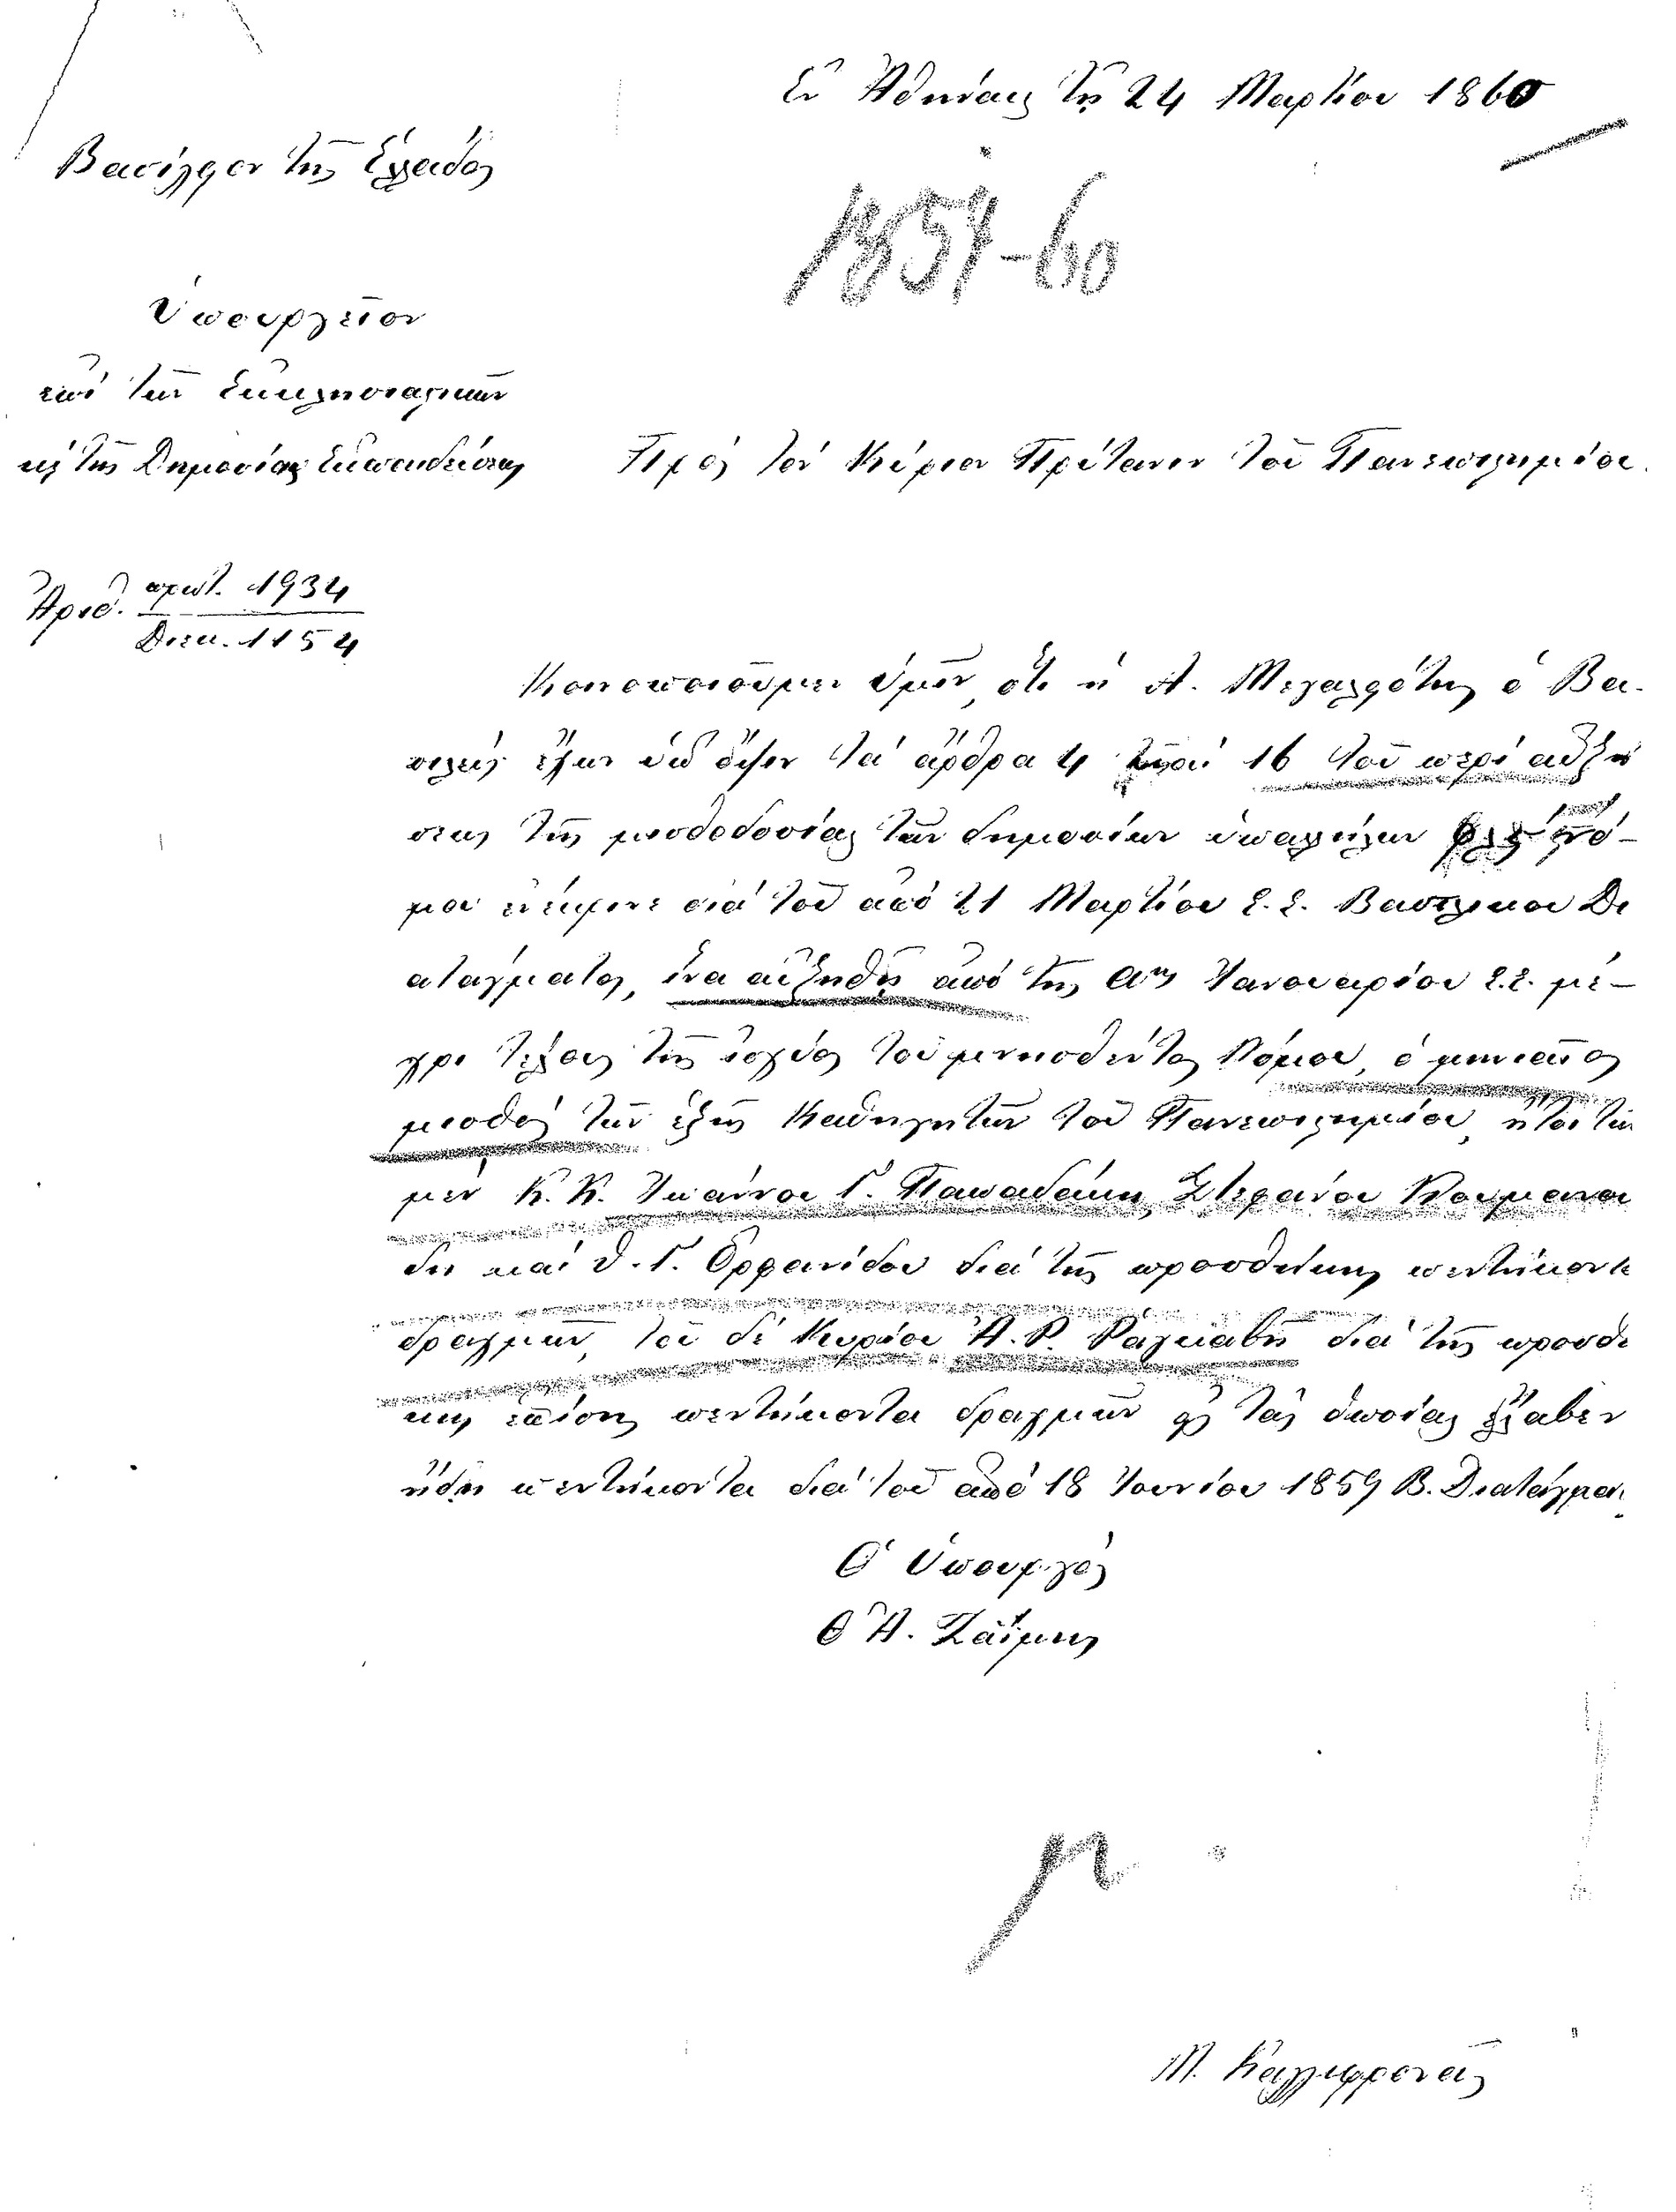 Ἐν Ἀθήναις τῇ 24 Μαρτίου 1860
Βασίλειον τῆς Ἑλλάδος
1859-60
Ὑπουργεῖον
ἐπὶ τῶν Ἐκκλησιαστικῶν
καὶ τῆς Δημοσίας Ἐκπαιδεύσεως
Πρὸς τὸν Κύριον Πρύτανιν τοῦ Πανεπιστημίου.
Ἀριθ. πρωτ. 1934
Διεκ. 1154
Κοινοποιοῦμεν ὑμῖν, ὅτι ἡ Α. Μεγαλειότης ὁ Βα-
σιλεὺς ἔχων ὑπ' ὄψιν τὰ ἄρθρα 4 καὶ 16 τοῦ περὶ αὐξή
σεως τῆς μισθοδοσίας τῶν δημοσίων ὑπαλλήλων νό-
μου ἐνέκρινε διὰ τοῦ ἀπὸ 21 Μαρτίου ἐ.ἔ. Βασιλικοῦ Δι
ατάγματος, ἵνα αὐξηθῇ ἀπὸ τῆς αης Ἰανουαρίου ἐ.ἔ. μέ-
χρι τέλους τῆς ἰσχύος τοῦ μνησθέντος Νόμου, ὁ μηνιαῖος
μισθὸς τῶν ἑξῆς Καθηγητῶν τοῦ Πανεπιστημίου, ἤτοι τῶν
μὲν Κ. Κ. Ἰωάννου Γ. Παπαδάκη, Στεφάνου Κουμανού
δη καὶ Θ. Γ. Ὀρφανίδου διὰ τῆς προσθήκης πεντήκοντα
δραχμῶν, τοῦ δὲ Κυρίου Ἀ. Ρ. Ραγκαβῆ διὰ τῆς προσθή
κης ἐπίσης πεντήκοντα δραχμῶν εἰς τὰς ὁποίας ἔλαβεν
ἤδη πεντήκοντα διὰ τοῦ ἀπὸ 18 Ἰουνίου 1859 Β. Διατάγμα
Ὁ Ὑπουργὸς
Θ Ἀ. Ζαΐμης
Μ. Καλλιφρονᾶς